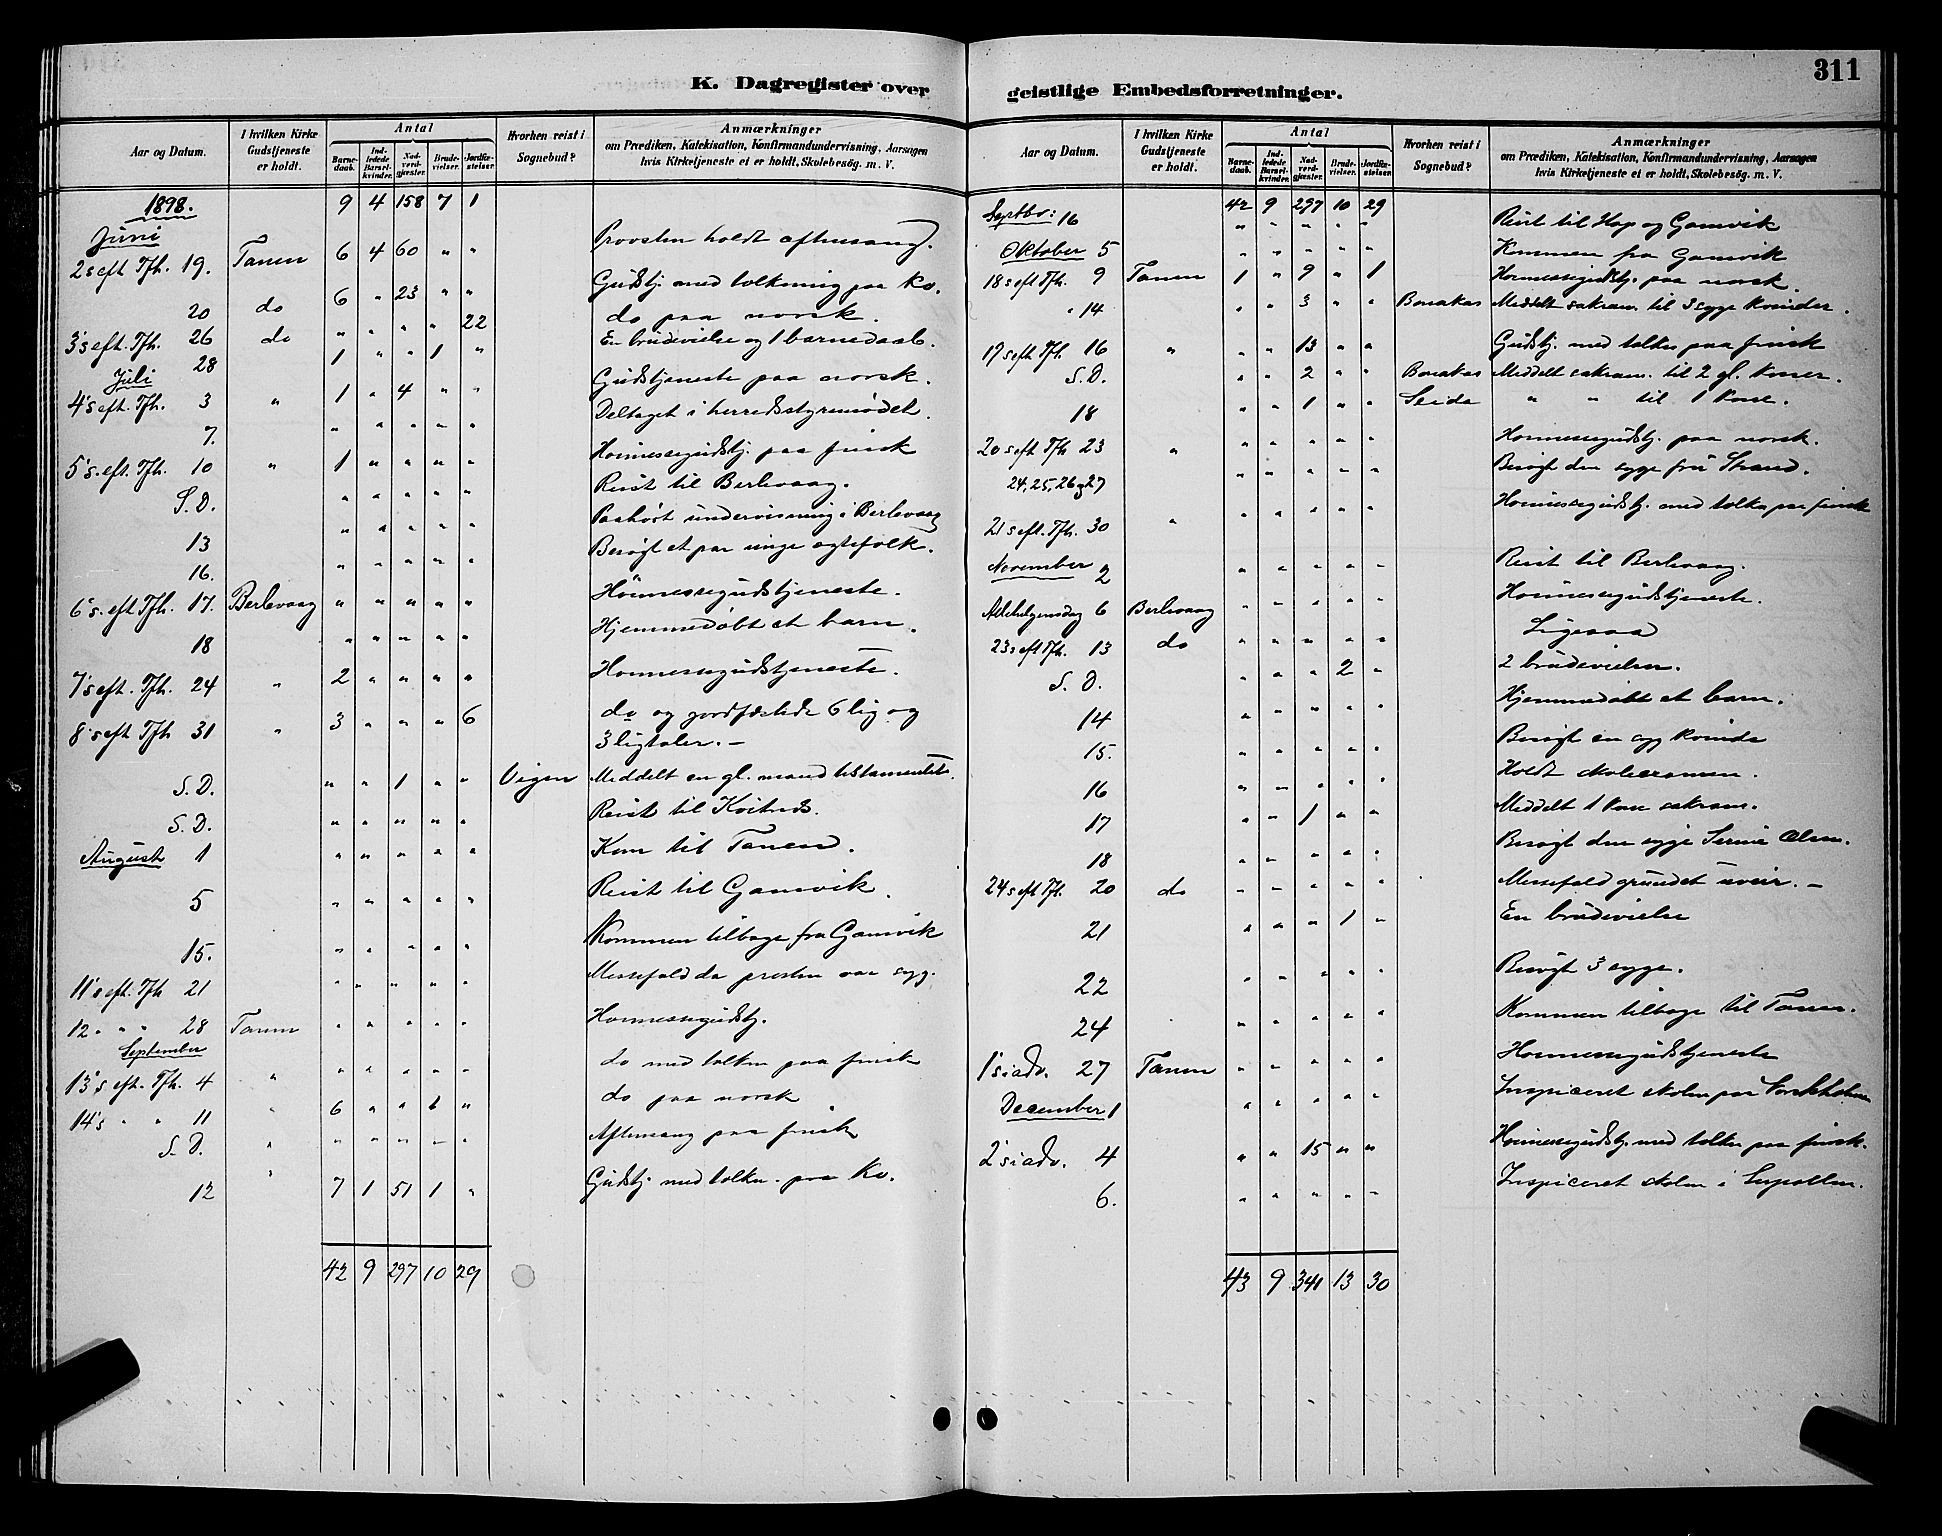 311
K. Dagregister over geistlige Embedsforretninger.
Aar og Datum. I hvilken Kirke Gudstjeneste er holdt. Antal Barnedaab. Indledede Barselkvinder. Nadverdgjester. Brudevielser. Jordfæstelser. Hvorhen reist i Sognebud? Anmærkninger om Prædiken, Katekisation, Konfirmandundervisning, Aarsagen hvis Kirketjeneste ei er holdt, Skolebesög. m. V.
1898. 9 4 158 7 1
Juni
2s eft Tfh. 19. Tanen 6 4 60 " " Provsten holdt aftensang.
20 do 6 " 23 " " Gudstj. med tolkning paa Kv.
3's eft. Tfh. 26 do " " " " 22 do paa norsk.
28 1 " " 1 " En brudevielse og 1 barnedaab.
Juli
4's eft. Tfh. 3 " 1 " 4 " " Gudstjeneste paa norsk.
7. " " " " " Deltaget i herredsstyremødet.
5's. eft. Tfh. 10 " 1 " " " " Hoimessegudstj. paa finsk
S. D. " " " " " Reist til Berlevaag.
13 " " " " " Paahørt undervisning i Berlevaag
16. " " " " " Besøgt et par unge egtefolk.
6's. eft Tfh. 17. Berlevaag " " " " " Höimessegudstjeneste.
18 " " " " " Hjemmedøbt et barn.
7's eft. Tfh. 24 " 2 " " " " Hoimessegudstjeneste.
8's eft Tfh 31 " 3 " " " 6 do og jordfæstede 6 lig og
3 ligtaler. —
S. D. " " 1 " " Vigen Meddelt en gl. mand testamentet.
S. D. " " " " " Reist til
August 1 " " " " " Kom til Tanen.
5 " " " " " Reist til Gamvik.
15. " " " " " Kommen tilbage fra Gamvik
11's eft. Tfh 21 " " " " " Messefald da presten var syg.
12 " " " 28 Tanen " " " " " Hoimessegudstj.
September
13's eft. Tfh. 4 " " " " " " do med tolken paa finsk
14's " " 11 " 6 " " 1 " do paa norsk
S. D. " " " " " " Aftensang paa finsk
12 " 7 1 51 1 " Gudstj. med tolken paa Kv.
42 9 297 10 29
Aar og Datum. I hvilken Kirke Gudstjeneste er holdt. Antal Barnedaab. Indledede Barselkvinder. Nadverdgjester. Brudevielser. Jordfæstelser. Hvorhen reist i Sognebud? Anmærkninger om Prædiken, Katekisation, Konfirmandundervisning, Aarsagen hvis Kirketjeneste ei er holdt, Skolebesög. m. V.
42 9 297 10 29
Septbr: 16 " " " " " Reist til Hop og Gamvik
Oktober 5 " " " " " Kommen fra Gamvik
18 s eft Tfh. 9 Tanen 1 " 9 " 1 Hoimessegudstj. paa norsk.
" 14 " " 3 " " Bonakas Meddelt sakram. til 3 syge kvinder.
19 s eft Tfh. 16 " " " 13 " " Gudstj. med tolken paa finsk
S. D. " " 2 " " Bonakas Meddelt sakram. til 2 gl. koner.
18 " " 1 " " Seida " " til 1 kone.
20 s eft Tfh 23 " " " " " " Hoimessegudstj. paa norsk.
24, 25, 26 og 27 " " " " " Besøgt den syge fru Strand.
21 s eft. Tfh. 30 " " " " " " Hoimessegudstj. med tolken paa finsk
November 2 " " " " " Reist til Berlevaag.
Allehelgensdag 6 Berlevaag " " " " " Hoimessegudstjeneste.
23 s eft Tfh. 13 do " " " " " Ligesaa
S. D. " " " 2 " 2 brudevielser.
14 " " " " " Hjemmedøbt et barn.
15. " " " " " Besøgt en syg kvinde
16 " " " " " Holdt skoleexamen.
17 " " 1 " " Meddelt 1 kone sakram.
18 " " " " " Besøgt den syge Olsen.
24 s eft Tfh. 20 do " " " " " Messefald grundet uveir. —
21 " " " 1 " En brudevielse
22 " " " " " Besøgt 3 syge.
24 " " " " " Kommen tilbage til Tanen.
1's i adv. 27 Tanen " " " " " Hoimessegudstjeneste
December 1 " " " " " Inspiceret skolen paa
2's i adv. 4 " " 15 " " Hoimessegudstj. med tolken paa finsk.
6. " " " " " Inspiceret skolen i
43 9 341 13 30